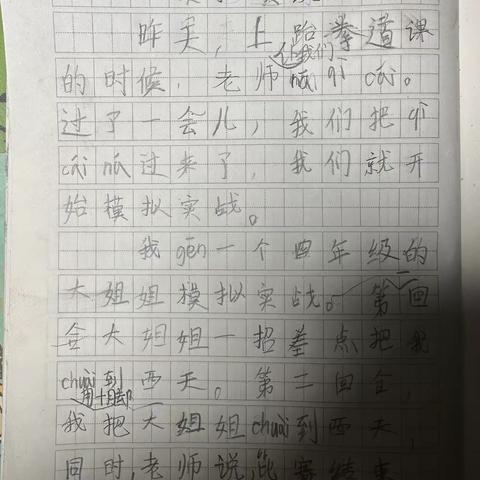 昨天,上跆拳道课
的时候,老师让我们ná qì cái。
过了一会儿,我们把qì
cái ná过来了,我们就开
始模拟实战。
我gēn一个四年级的
大姐姐模拟实战。第一回
合大姐姐一招差点把我
chuài到西天。第二回合,
我用十脚把大姐姐chuài到西天,
同时,老师说,比赛结束